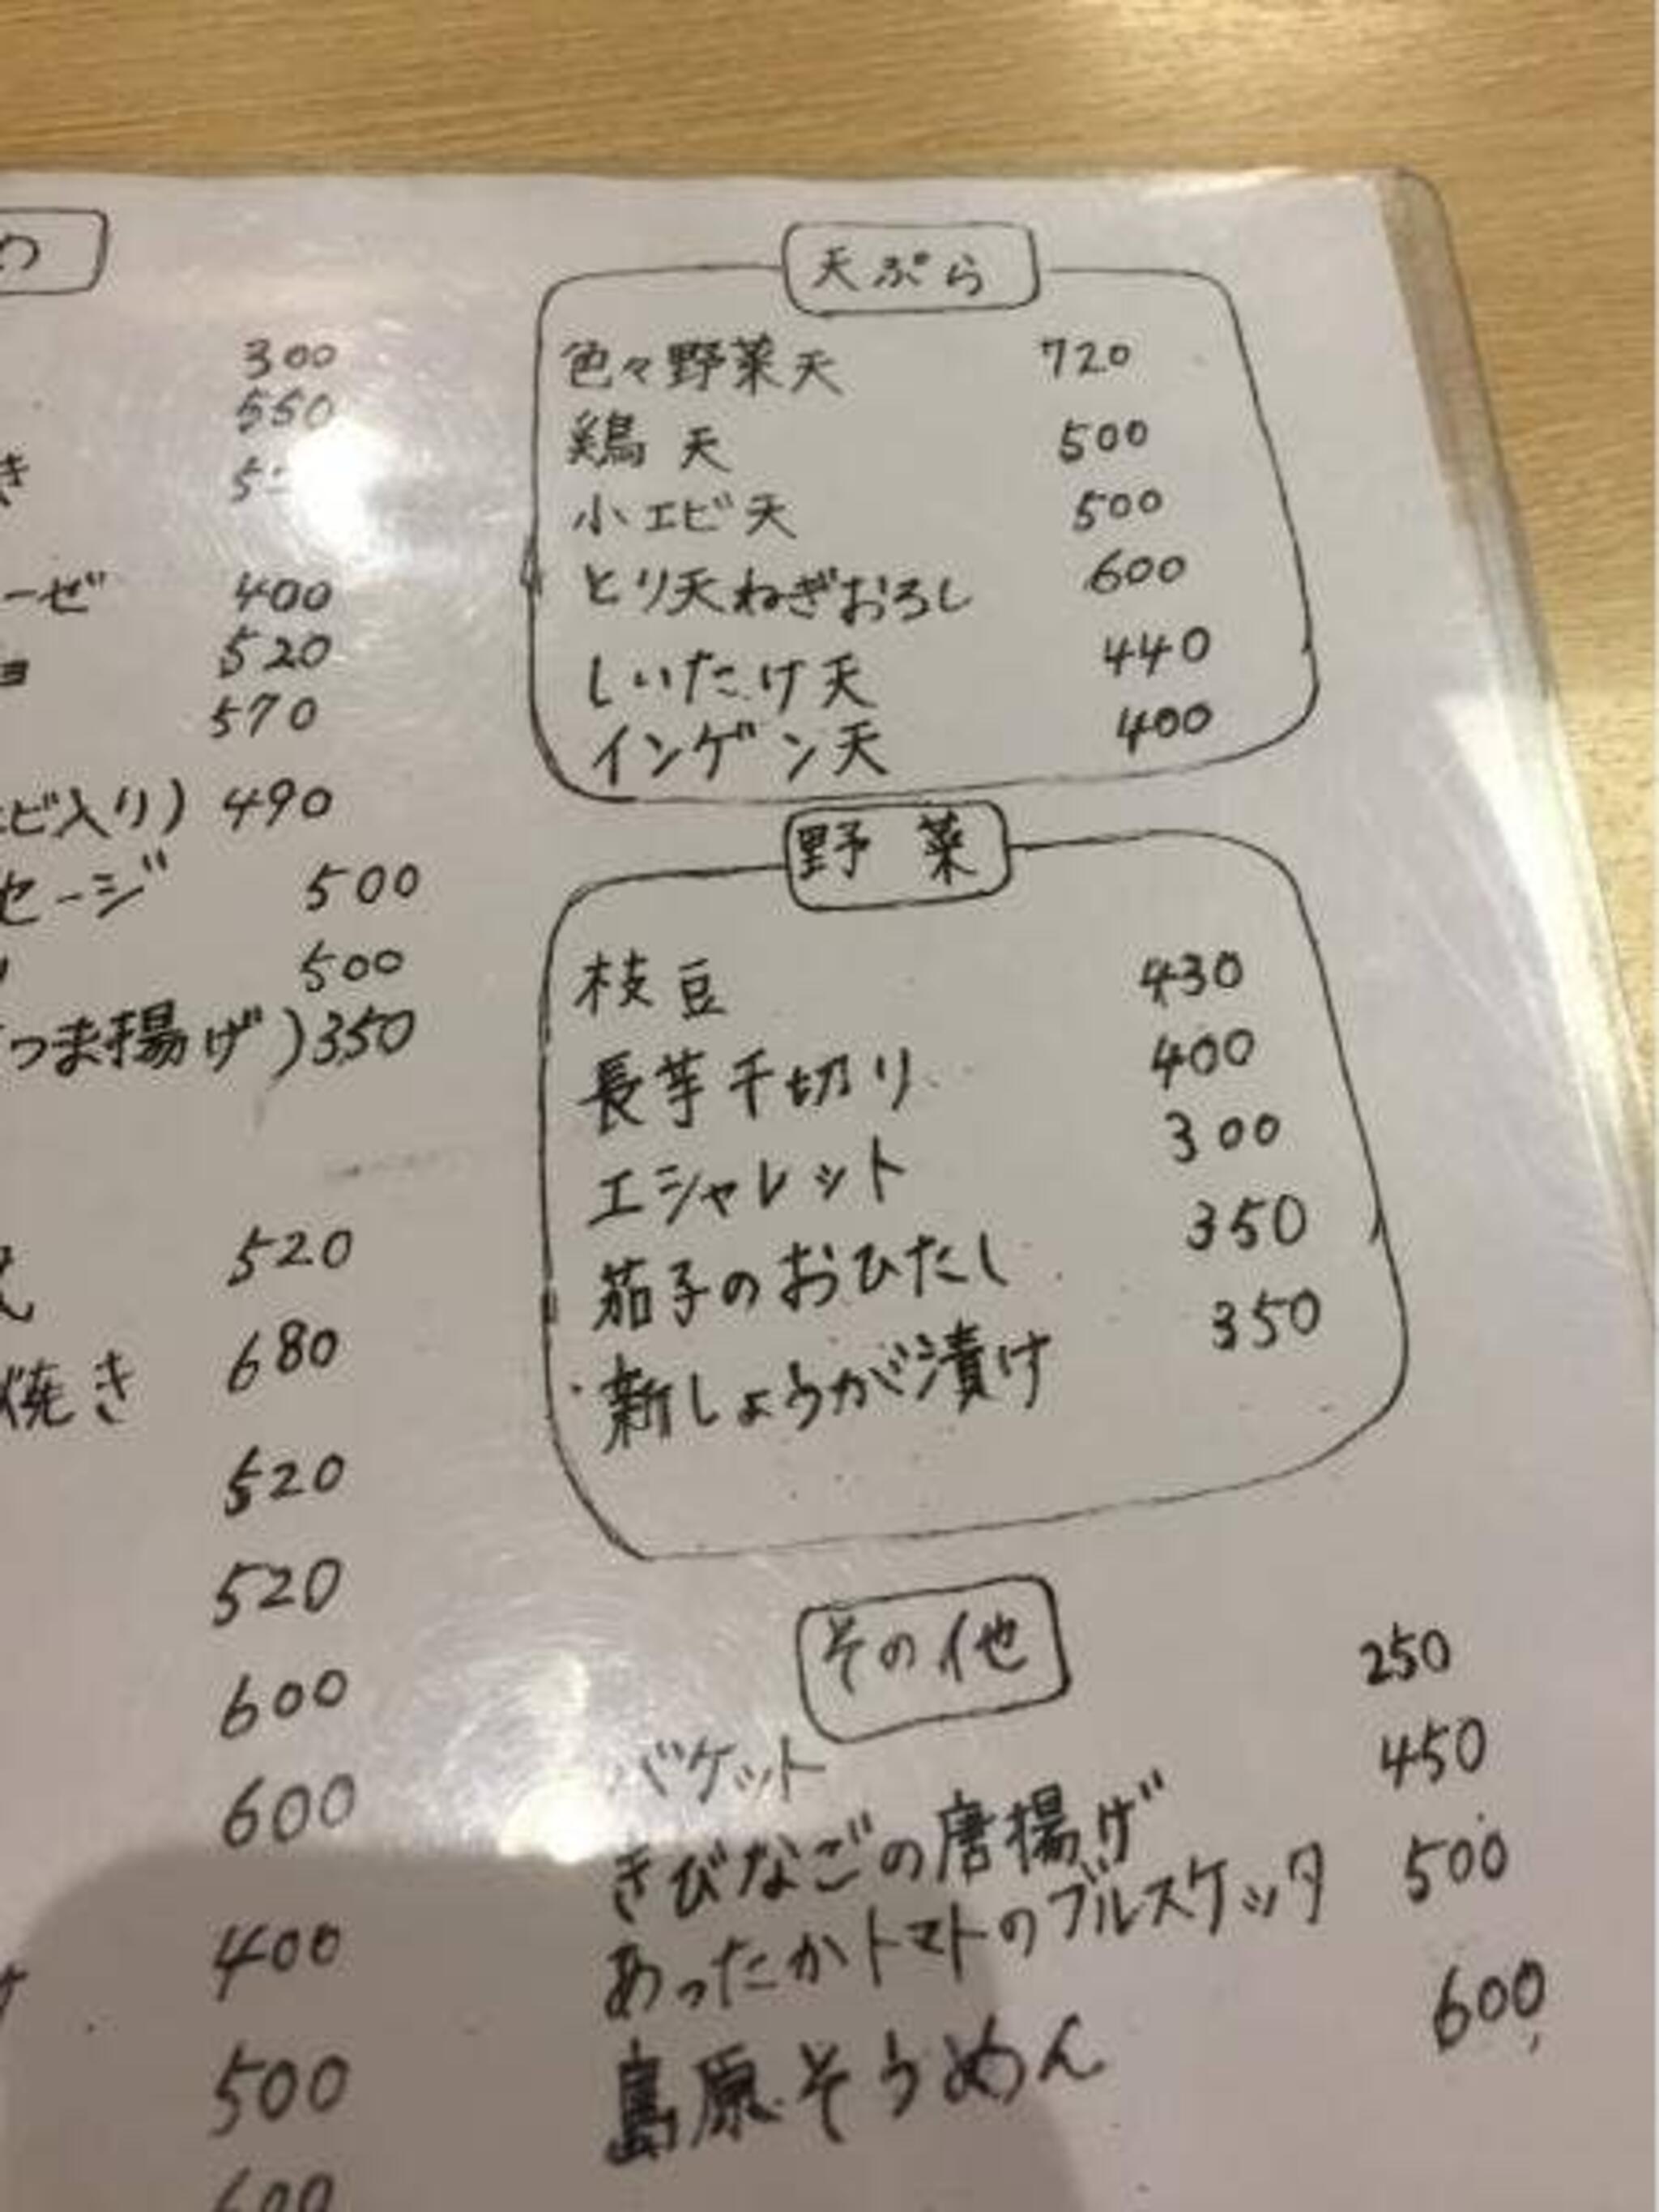 300
550
き
400
ーゼ
520
ョ
570
ビ入り) 490
セージ 500
500
つま揚げ) 350
520
680
焼き
520
520
600
600
400
500
600
天ぷら
色々野菜天 720
鶏天 500
小エビ天 500
とり天ねぎおろし 600
しいたけ天 440
インゲン天 400
野菜
枝豆 430
長芋千切り 400
エシャレット 300
茄子のおひたし 350
新しょうが漬け 350
その他
バケット 250
きびなごの唐揚げ 450
あったかトマトのブルスケッタ 500
島原そうめん 600